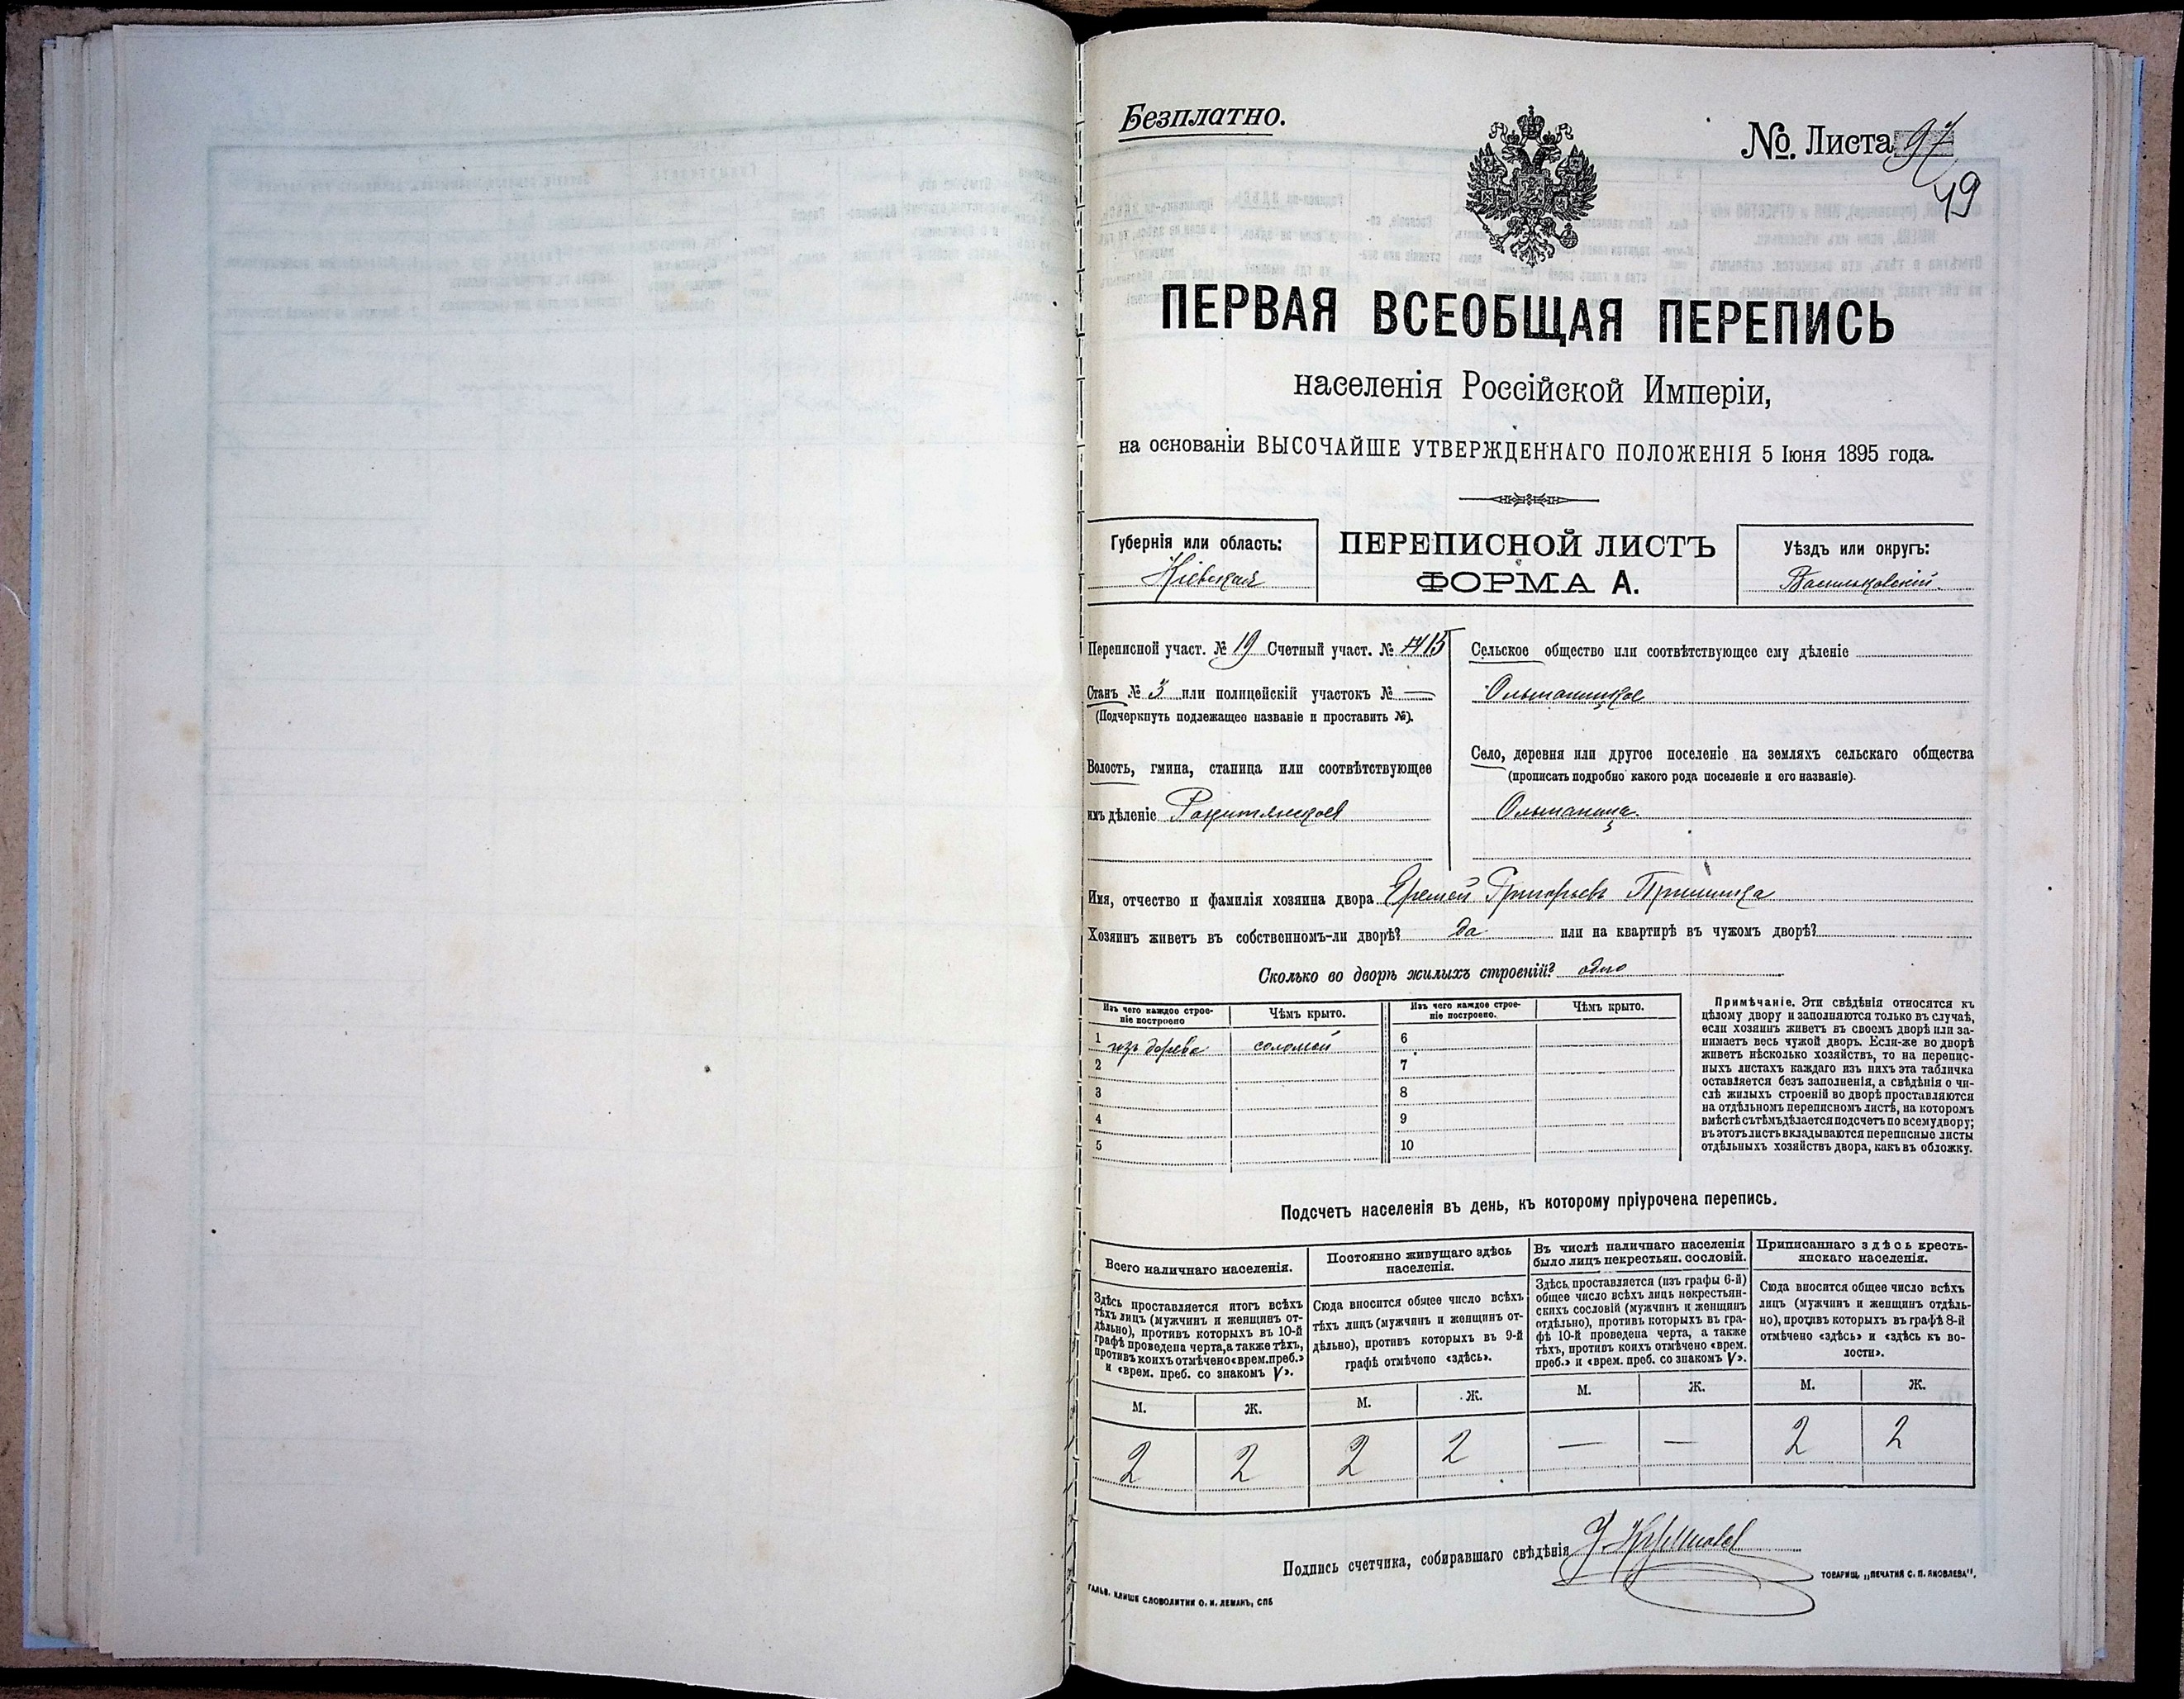 Безплатно.
№ Листа 97
49
ПЕРВАЯ ВСЕОБЩАЯ ПЕРЕПИСЬ
населенія Россійской Имперіи,
на основаніи ВЫСОЧАЙШЕ УТВЕРЖДЕННАГО ПОЛОЖЕНІЯ 5 Іюня 1895 года.
Губернія или область:
Кіевская
ПЕРЕПИСНОЙ ЛИСТЪ
ФОРМА А.
Уѣздъ или округъ:
Васильковскій
Переписной участ. № 19 Счетный участ. №
Станъ № 3 или полицейскій участокъ № —
(Подчеркнуть подлежащее названіе и проставить №).
Волость, гмина, станица или соотвѣтствующее
имъ дѣленіе Ракитянская
Сельское общество или соотвѣтствующее ему дѣленіе
Ольшаницкое
Село, деревня или другое поселеніе на земляхъ сельскаго общества
(прописать подробно какого рода поселеніе и его названіе).
Ольшаница
Имя, отчество и фамилія хозяина двора Еремей Григорьевъ
Хозяинъ живетъ въ собственномъ-ли дворѣ? да или на квартирѣ въ чужомъ дворѣ?
Сколько во дворѣ жилыхъ строеній? одно
Изъ чего каждое строе-
ніе построено
Чѣмъ крыто.
Изъ чего каждое строе-
ніе построено.
Чѣмъ крыто.
1 изъ дерева соломой 6
2 7
3 8
4 9
5 10
Примѣчаніе. Эти свѣдѣнія относятся къ
цѣлому двору и заполняются только въ случаѣ,
если хозяинъ живетъ въ своемъ дворѣ или за-
нимаетъ весь чужой дворъ. Если-же во дворѣ
живетъ нѣсколько хозяйствъ, то на перепис-
ныхъ листахъ каждаго изъ нихъ эта табличка
оставляется безъ заполненія, а свѣдѣнія о чи-
слѣ жилыхъ строеній во дворѣ проставляются
на отдѣльномъ переписномъ листѣ, на которомъ
вмѣстѣ съ тѣмъ дѣлается подсчетъ по всему двору;
въ этотъ листъ вкладываются переписные листы
отдѣльныхъ хозяйствъ двора, какъ въ обложку.
Подсчетъ населенія въ день, къ которому пріурочена перепись.
Всего наличнаго населенія.
Здѣсь проставляется итогъ всѣхъ
тѣхъ лицъ (мужчинъ и женщинъ от-
дѣльно), противъ которыхъ въ 10-й
графѣ проведена черта, а также тѣхъ,
противъ коихъ отмѣчено «врем. преб.»
и «врем. преб. со знакомъ V».
Постоянно живущаго здѣсь
населенія.
Сюда вносится общее число всѣхъ
тѣхъ лицъ (мужчинъ и женщинъ от-
дѣльно), противъ которыхъ въ 9-й
графѣ отмѣчено «здѣсь».
Въ числѣ наличнаго населенія
было лицъ некрестьян. сословій.
Здѣсь проставляется (изъ графы 6-й)
общее число всѣхъ лицъ некрестьян-
скихъ сословій (мужчинъ и женщинъ
отдѣльно), противъ которыхъ въ гра-
фѣ 10-й проведена черта, а также
тѣхъ, противъ коихъ отмѣчено «врем.
преб.» и «врем. преб. со знакомъ V».
Приписаннаго здѣсь кресть-
янскаго населенія.
Сюда вносится общее число всѣхъ
лицъ (мужчинъ и женщинъ отдѣль-
но), противъ которыхъ въ графѣ 8-й
отмѣчено «здѣсь» и «здѣсь къ во-
лости».
М. Ж. М. Ж. М. Ж. М. Ж.
2 2 2 2 — — 2 2
Подпись счетчика, собиравшаго свѣдѣнія
ГАЛЬВ. КЛИШЕ СЛОВОЛИТНИ О. И. ЛЕМАНЪ, СПБ
ТОВАРИЩ. „ПЕЧАТНЯ С. П. ЯКОВЛЕВА".